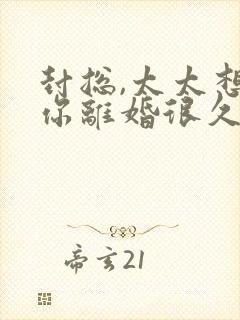 封总,太太想
你離婚很久
帝玄21